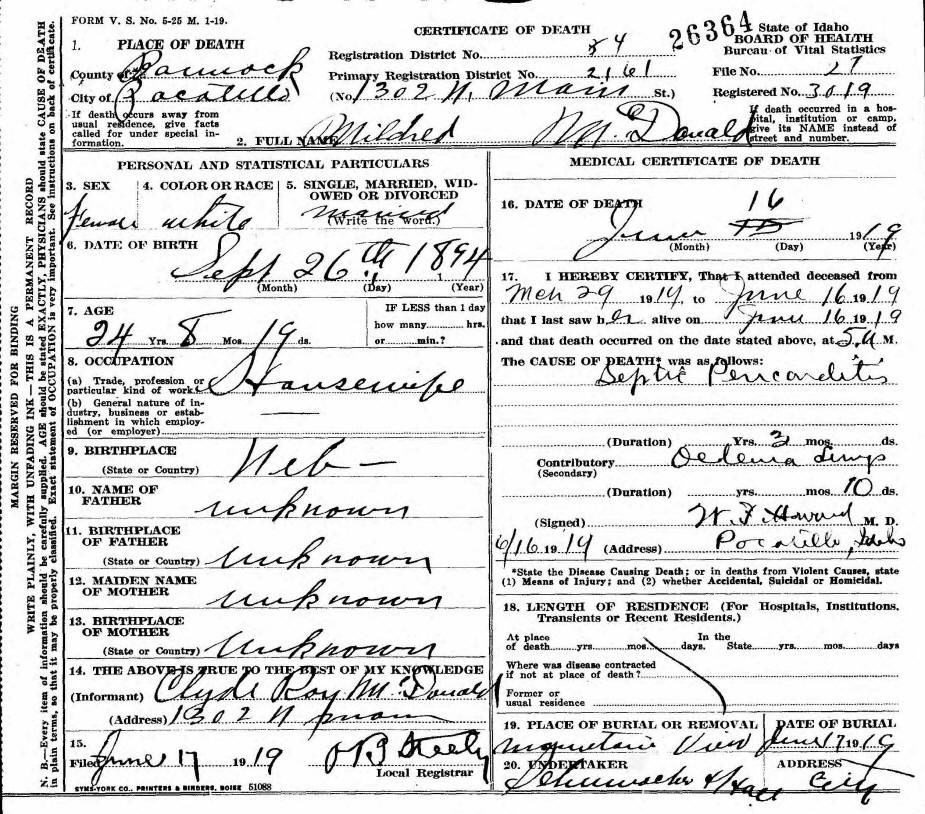 FORM V. S. No. 5-25 M. 1-19.
CERTIFICATE OF DEATH
26364
State of Idaho
BOARD OF HEALTH
Bureau of Vital Statistics
1. PLACE OF DEATH
County of Bannock
City of Pocatello
If death occurs away from
usual residence, give facts
called for under special in-
formation.
Registration District No. 84
Primary Registration District No. 2161
(No. 1302 N. Main St.)
File No. 27
Registered No. 3019
If death occurred in a hos-
pital, institution or camp,
give its NAME instead of
street and number.
2. FULL NAME Mildred McDonald
PERSONAL AND STATISTICAL PARTICULARS
3. SEX
Female
4. COLOR OR RACE
white
5. SINGLE, MARRIED, WID-
OWED OR DIVORCED
married
(Write the word.)
6. DATE OF BIRTH
Sept 26th 1894
(Month) (Day) (Year)
7. AGE
24 Yrs. 8 Mos. 19 ds.
IF LESS than 1 day
how many hrs.
or min.?
8. OCCUPATION
(a) Trade, profession or
particular kind of work Housewife
(b) General nature of in-
dustry, business or estab-
lishment in which employ-
ed (or employer)
9. BIRTHPLACE
(State or Country) Neb —
10. NAME OF
FATHER unknown
11. BIRTHPLACE
OF FATHER
(State or Country) Unknown
12. MAIDEN NAME
OF MOTHER unknown
13. BIRTHPLACE
OF MOTHER
(State or Country) Unknown
14. THE ABOVE IS TRUE TO THE BEST OF MY KNOWLEDGE
(Informant) Clyde Roy McDonald
(Address) 1302 N main
15.
Filed June 17 1919 Steely
Local Registrar
SYMS-YORK CO., PRINTERS & BINDERS, BOISE 51088
MEDICAL CERTIFICATE OF DEATH
16. DATE OF DEATH
June 16 1919
(Month) (Day) (Year)
17. I HEREBY CERTIFY, That I attended deceased from
Mch 29 1919, to June 16 1919
that I last saw her alive on June 16 1919
and that death occurred on the date stated above, at 5 A M.
The CAUSE OF DEATH* was as follows:
Septic Pericarditis
(Duration) Yrs. 3 mos. ds.
Contributory Oedema Lungs
(Secondary)
(Duration) yrs. mos. 10 ds.
(Signed) W. F. Howard M. D.
6/16 1919 (Address) Pocatello, Idaho
*State the Disease Causing Death; or in deaths from Violent Causes, state
(1) Means of Injury; and (2) whether Accidental, Suicidal or Homicidal.
18. LENGTH OF RESIDENCE (For Hospitals, Institutions,
Transients or Recent Residents.)
At place In the
of death yrs. mos. days. State yrs. mos. days
Where was disease contracted
if not at place of death?
Former or
usual residence
19. PLACE OF BURIAL OR REMOVAL
Mountain View
DATE OF BURIAL
June 17 1919
20. UNDERTAKER
Schumacher & Hall
ADDRESS
City
MARGIN RESERVED FOR BINDING
WRITE PLAINLY, WITH UNFADING INK—THIS IS A PERMANENT RECORD
N. B.—Every item of information should be carefully supplied. AGE should be stated EXACTLY. PHYSICIANS should state CAUSE OF DEATH
in plain terms, so that it may be properly classified. Exact statement of OCCUPATION is very important. See instructions on back of certificate.